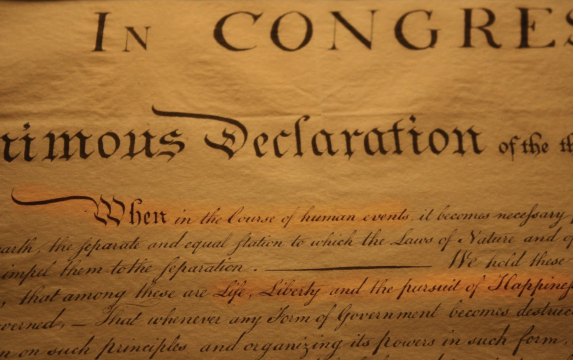 In CONGRES
nimous Declaration of the th
When in the Course of human events, it becomes necessary
earth, the separate and equal station to which the Laws of Nature and of
impel them to the separation. We hold these
, that among these are Life, Liberty and the pursuit of Happines
verned, — That whenever any Form of Government becomes destruc
on such principles and organizing its powers in such form,